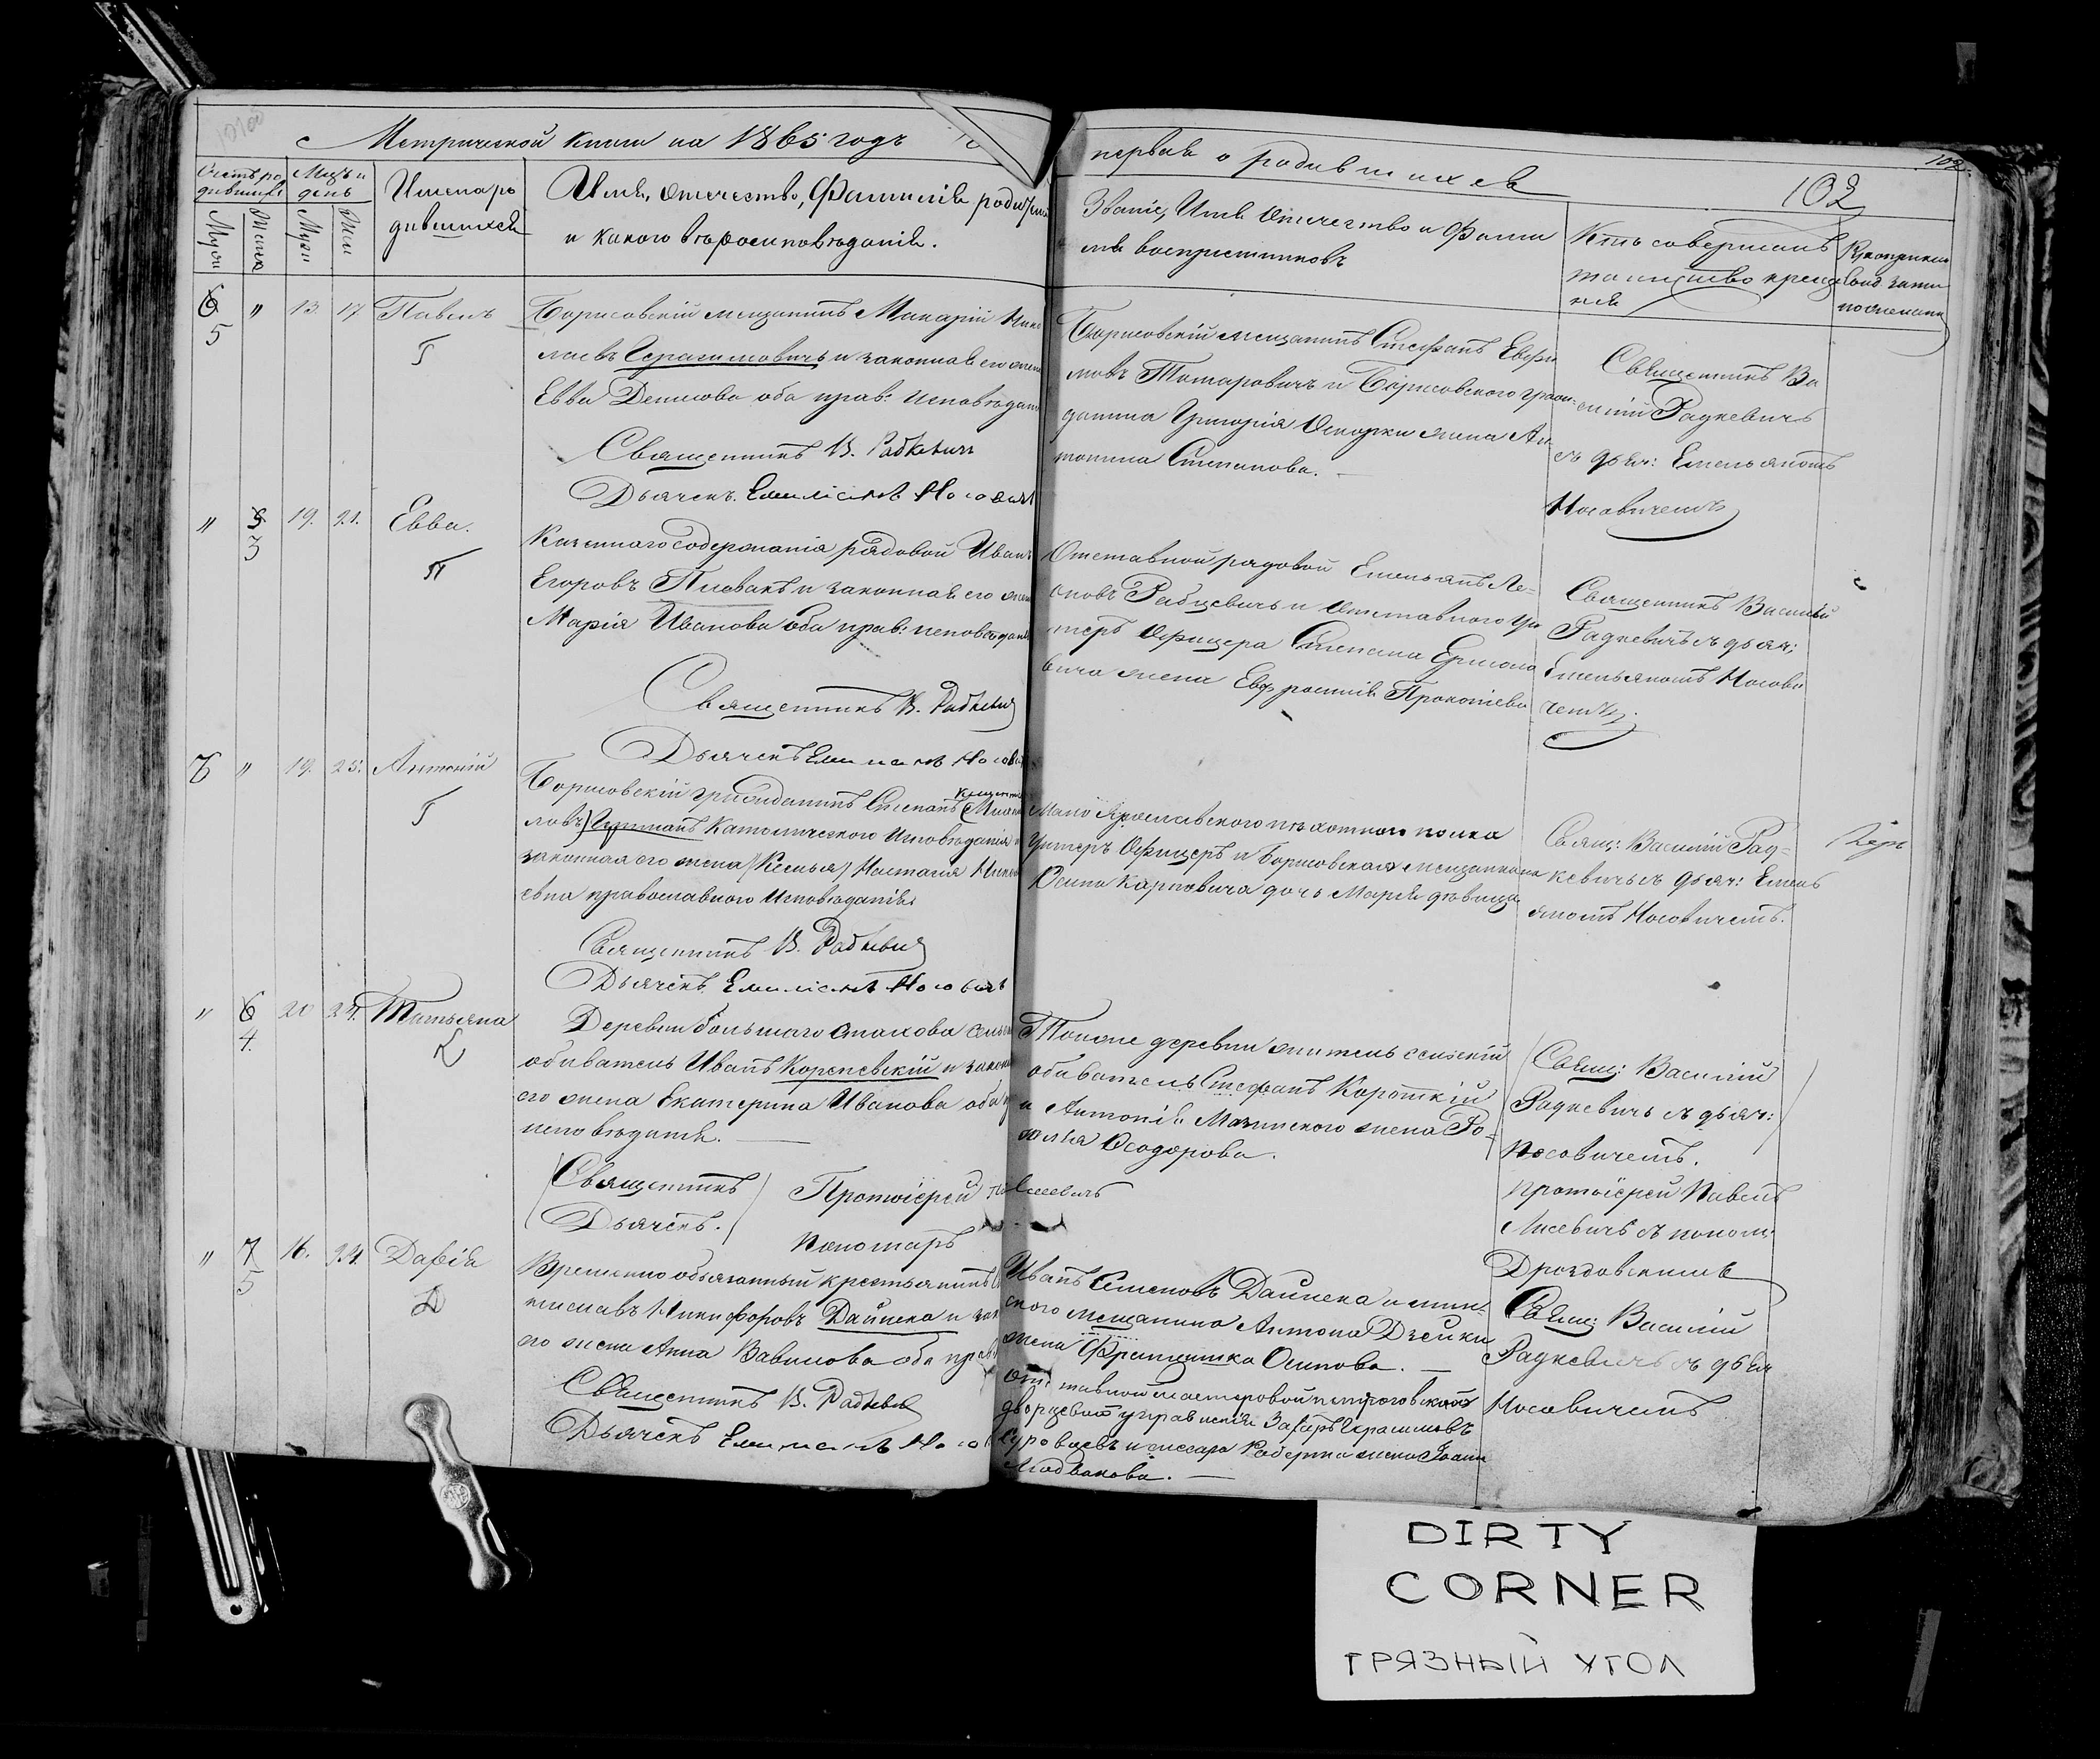 Метрической книги на 1865 годъ
первая о родившихся
102
102
Счетъ ро
дившихъ
Мцъ и
день
Имена ро
дившихся
Имя, отчество, Фамилія родит
и какого вѣроисповѣданія.
Званіе, Имя Отчество и Фами
лія воспріемниковъ
Кто совершалъ
таинство креще
нія
Рукоприкл
свид. запи
по желанію
Муж
Жен
6
5
"
13.
17
Павелъ
Г
Борисовскій мещанинъ Макарій Нико
лаевъ Герасимовичъ и законная его жен
Евва Денисова оба прав: исповѣдан
Священникъ В. Радкевич
Дьячекъ Емиліанъ Носович
Борисовскій мещанинъ Стефанъ Ефи
мовъ Томаровичъ и Борисовского граж
данина Григорія Оскорки жена Ан
тонина Степанова.
Священникъ Ва
силій Радкевичъ
съ дьяч: Емельяномъ
Носовичемъ
"
3
19.
21.
Евва.
П
Казеннаго содержанія рядовой Иван
Егоровъ Пловакъ и законная его жен
Марія Иванова оба прав: исповѣдан
Священникъ В. Радкевич
Дьячекъ Емилианъ Носов
Отставной рядовой Емельянъ Ле-
оновъ Рабцевичъ и отставного Ун
теръ Офицера Степана Ермоло
вича жена Евфросинія Прокопіева
Священникъ Василій
Радкевичъ съ дьяч:
Емельяномъ Носови
чемъ.
6
"
19.
25.
Антоній
Г
Борисовскій гражданинъ Степанъ (Миха
ловъ) Гурманъ Католического Исповѣданія и
законная его жена (Ксенья) Настасія Никол
евна православного Исповѣданія
Священникъ В. Радкевич
Дьячекъ Емилианъ Носович
Мало Ярославского пѣхотного полка
Унтеръ Офицеръ и Борисовская мещанка
Осипа Карповича дочь Марія дѣвица
Свящ: Василій Рад-
кевичъ съ дьяч: Емель
яномъ Носовичемъ.
"
6
4.
20
24.
Татьяна
К
Деревни Большаго Стахова сельск
обыватель Иванъ Кореневскій и закон
его жена Екатерина Иванова оба пр
исповѣданія.
Священникъ
Дьячекъ.
Протоіерей П Лисевичъ
Пономарь
Тоиже деревни житель сельскій
обыватель Стефанъ Короткій
и Антонія Мачинского жена Ро-
залія Ѳеодорова.
Свящ: Василій
Радкевичъ съ дьяч:
Носовичемъ.
Протоіерей Павелъ
Лисевичъ съ поном:
Дроздовскимъ
"
7
5
16.
24.
Дарія
Д
Временно обязанный крестьянинъ
Никифоровъ Дайнека и зак
его жена Анна Вавилова оба прав
Священникъ В. Радкевич
Дьячекъ Емилианъ Носов
Иванъ Семеновъ Дайнека и мин-
ского мещанина Антона Дзейки
жена Франтишка Осипова.
Отставной мастеровой петроговской
дворцевой управленія Захаръ Герасимовъ
Суровцевъ и жена Іоанн
Свящ: Василій
Радкевичъ съ дьяч
Носовичемъ
DIRTY
CORNER
ГРЯЗНЫЙ УГОЛ